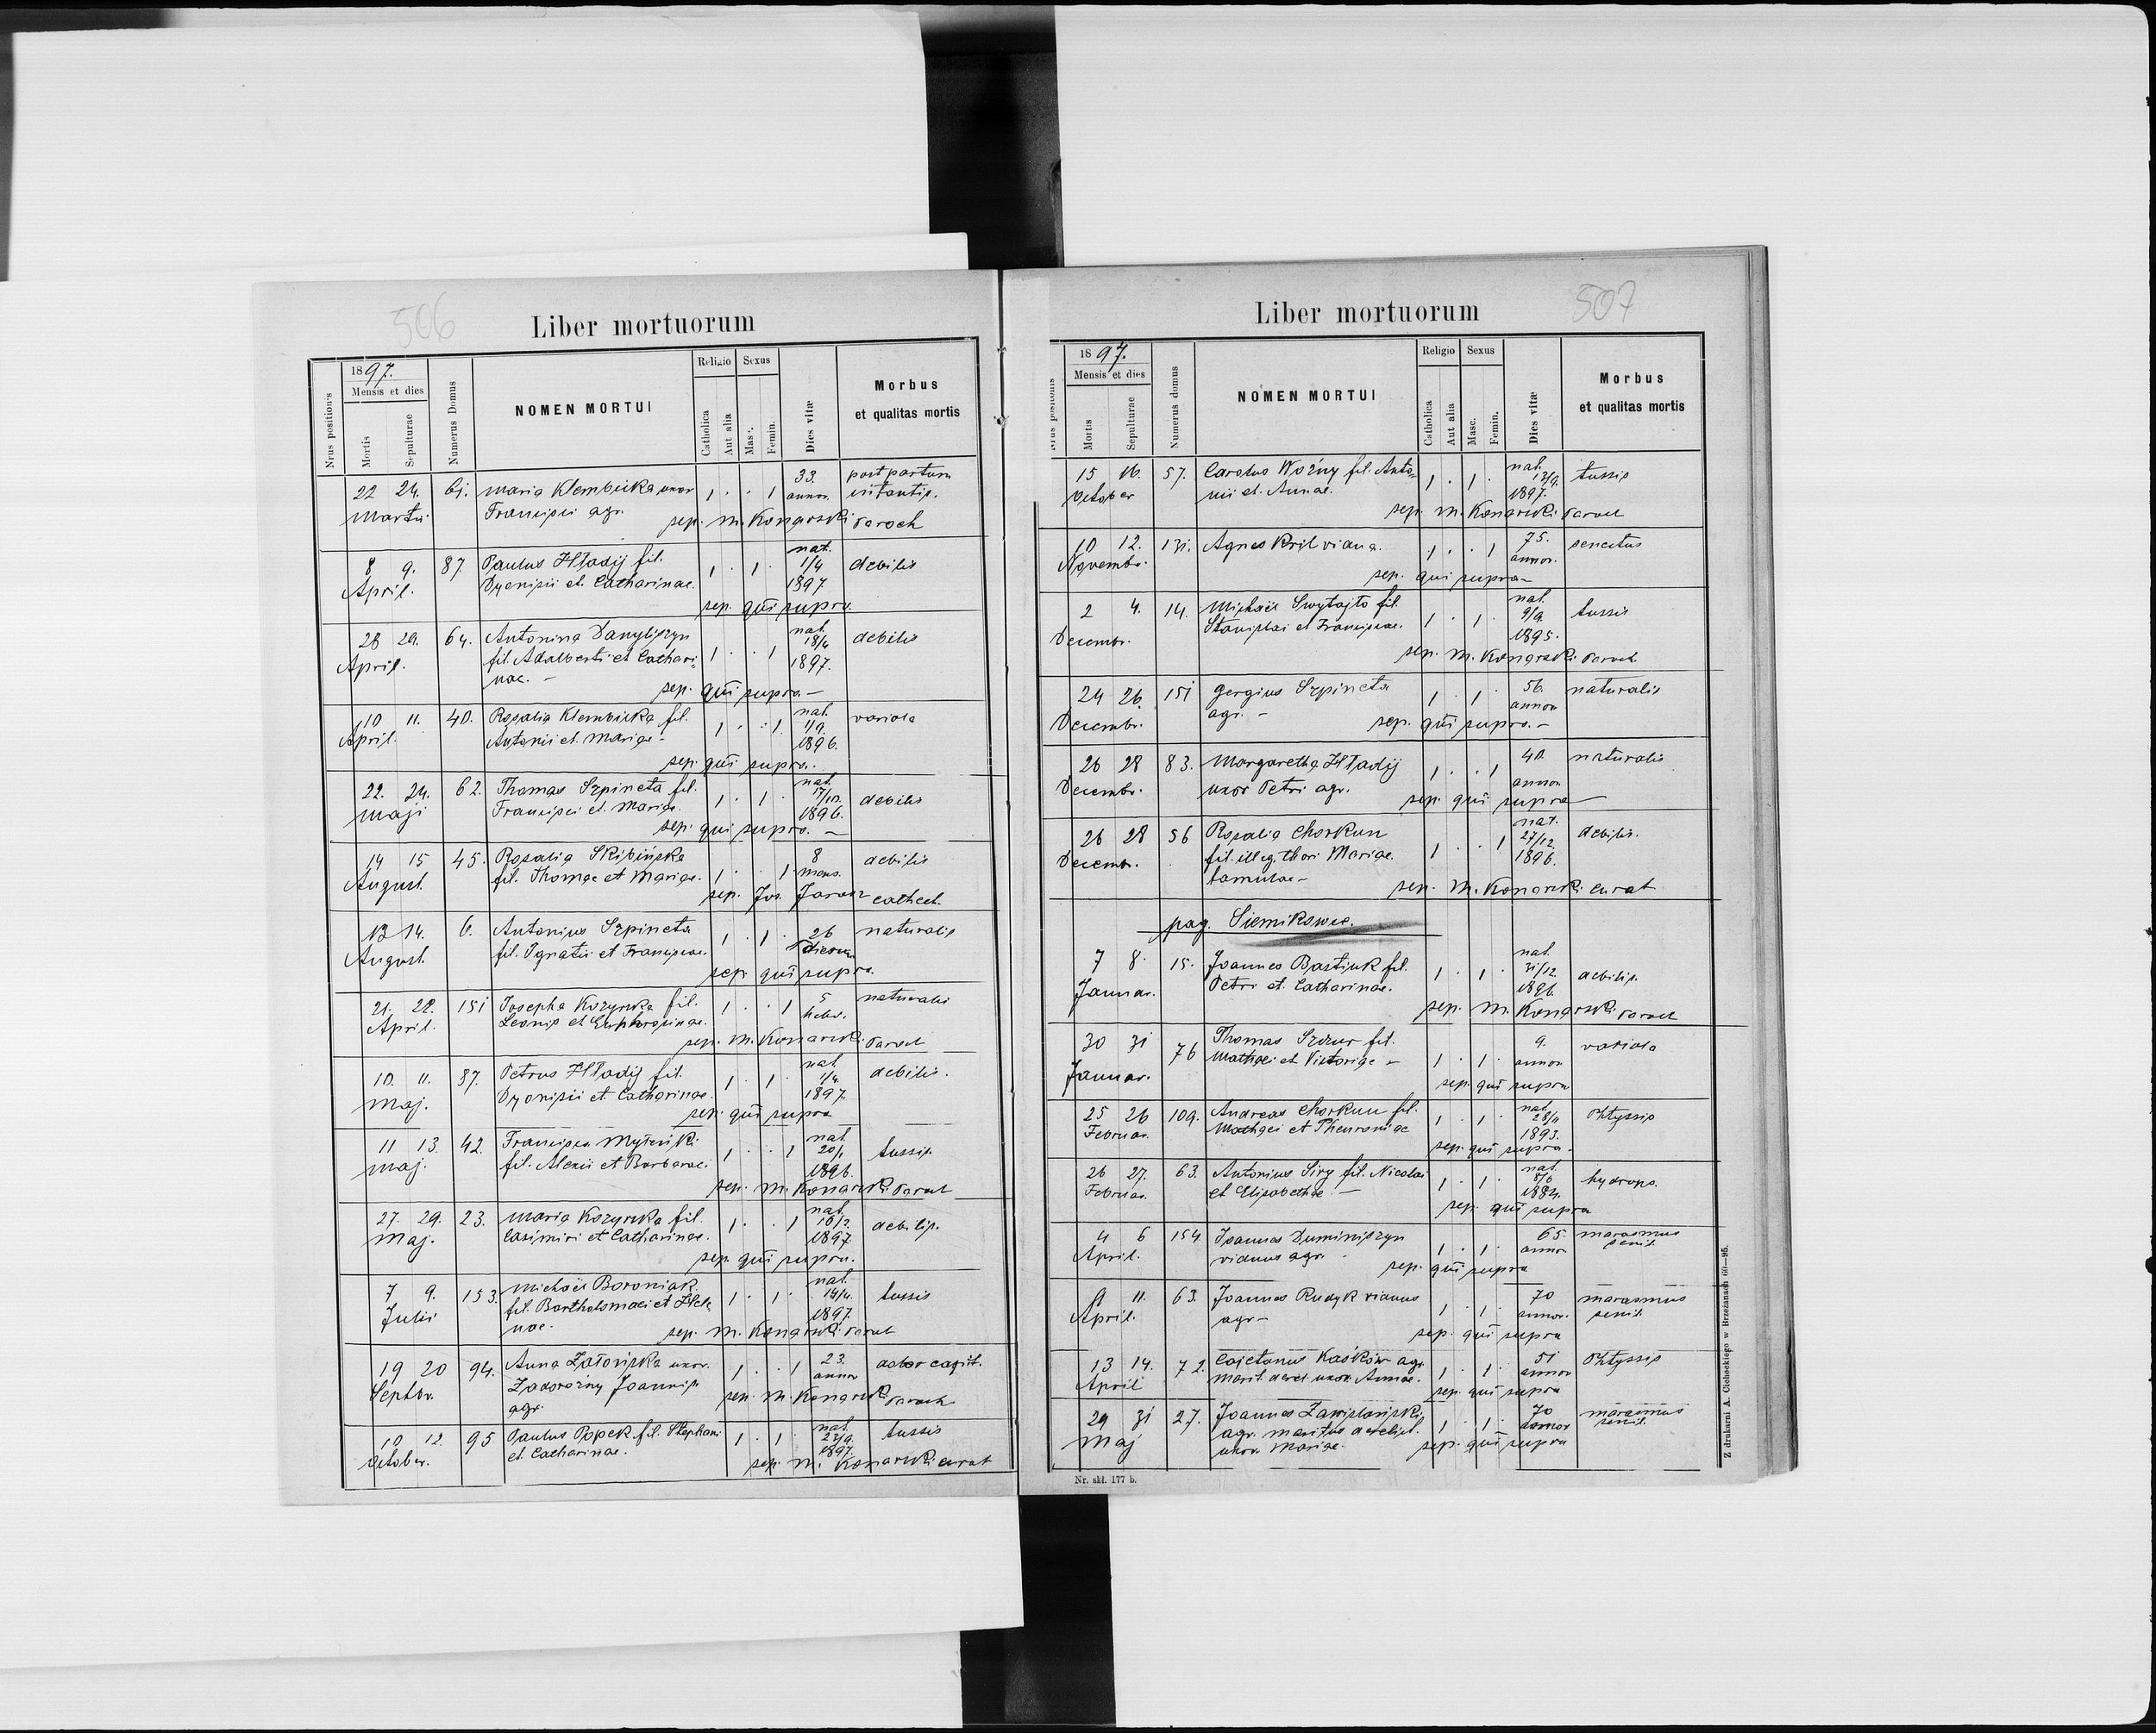 506
Liber mortuorum
Nrus positionis
1897.
Mensis et dies
Mortis
Sepulturae
Numerus Domus
NOMEN MORTUI
Religio
Catholica
Aut alia
Sexus
Masc.
Femin.
Dies vitæ
Morbus
et qualitas mortis
22 24. 61. Maria Klembicka uxor 1 . . 1 33. post partum
Martii Francisci agr. annor.
sep. M. Konarski Paroch
8 9. 87 Paulus Hładij fil. 1 . 1 . nat. 1/4 1897 debilis
April. Dyonisii et Catharinae.
sep. qui supra.
28 29. 64. Antonina Danyliszyn 1 . . 1 nat. 18/4 1897. debilis
April. fil. Adalberti et Cathari-
nae. –
sep. qui supra –
10 11. 40. Rosalia Klembicka fil. 1 . . 1. nat. 1896. variola
April. Antonii et Mariae –
sep. qui supra.
22. 24. 62. Thomas Szpineta fil. 1 . 1 . nat. 17/10. 1896. debilis
Maji Francisci et Mariae.
sep. qui supra. –
14 15 45. Rosalia Skibińska 1 . . 1 8 mens. debilis
August. fil. Thomae et Mariae.
sep. Jos. cathech.
13 14. 6. Antonius Szpineta 1 . 1 . 26 dierum naturalis
August. fil. Ignatii et Franciscae.
sep. qui supra
21. 22. 151 Josepha Kozynka fil. 1 . . 1 5 hebd. naturalis
April. Leonis et Euphrosinae.
sep. M. Konarski Paroch
10. 11. 87. Petrus Hładij fil. 1 . 1 . nat. 1/4. 1897. debilis.
Maj. Dyonisii et Catharinae.
sep. qui supra
11 13. 42. Francisca 1 . . 1 nat. 20/1 1896. tussis.
Maj. fil. Alexii et Barbarae.
sep. M. Konarski Paroch
27. 29. 23. Maria Kozynka fil. 1 . . 1 nat. 1897 debilis.
Maj. Casimiri et Catharinae.
sep. qui supra.
7 9. 153. Michaël Boroniak 1 . 1 . nat. 14/4. 1897. tussis
Julii fil. Bartholomaei et Hele-
nae.
sep. M. Konarski Paroch
19 20 94. Anna uxor. 1 . . 1 23. annor dolor capit.
Septbr. Zadorożny Joannis
agr.
sep. M. Konarski Paroch
10 12. 95 Paulus Popek fil. Stephani 1 . 1 . nat. 23/9. 1897. tussis
October. et Catharinae.
sep. M. Konarski curat
507
Liber mortuorum
Nrus positionis
1897.
Mensis et dies
Mortis
Sepulturae
Numerus domus
NOMEN MORTUI
Religio
Catholica
Aut alia
Sexus
Masc.
Femin.
Dies vitæ
Morbus
et qualitas mortis
15 16. 57. Carolus Woźny fil. Anto- 1 . 1 . nat. 13/9. 1897. tussis
October nii et Annae.
sep. M. Konarski Paroch
10 12. 131. Agnes Kril vidua. 1 . . 1 75. annor. senectus
Novembr.
sep. qui supra –
2 4. 14. Michaël Swytajło fil. 1 . 1 . nat. 9/9. 1895. tussis
Decembr. Stanislai et Franciscae.
sep. M. Konarski Paroch
24 26. 151 Gergius Szpineta 1 . 1 . 56. annor naturalis
Decembr. agr. –
sep. qui supra. –
26 28 83. Margaretha Hładij 1 . . 1 40. annor naturalis
Decembr. uxor Petri agr.
sep. qui supra –
26 28 56 Rosalia Chorkun 1 . . 1 nat. 27/12. 1896. debilis.
Decembr. fil. illeg. thori Mariae
famulae –
sep. M. Konarski curat
pag. Siemikowce.
7 8. 15. Joannes Bastiuk fil. 1 . 1 . nat. 31/12. 1896. debilis.
Januar. Petri et Catharinae.
sep. M. Konarski Paroch
30 31 76 Thomas fil. 1 . 1 . 9. annor variola
Januar. Mathaei et Victoriae –
sep. qui supra
25 26 109. Andreas Chorkun fil. 1 . 1 . nat. 1893. Phtyssis
Februar. Mathaei et
sep. qui supra –
26 27. 63. Antonius Siry fil. Nicolai 1 . 1 . nat. 8/6 1884. hydrops.
Februar. et Elisabethae –
sep. qui supra
4 6 154 Joannes Duminiszyn 1 . 1 . 65. annor marasmus
April. viduus agr. senil.
sep. qui supra
9 11. 63. Joannes Rudyk viduus 1 . 1 . 70 annor. marasmus
April. agr – senil.
sep. qui supra
13 14. 72. Cajetanus Kaśków agr. 1 . 1 . 51 annor Phtyssis
April marit. derel. uxor. Annae.
sep. qui supra
29 31 27. Joannes Zawisłański 1 . 1 . 70 annor marasmus
Maj agr. maritus derelict. senil.
uxor. Mariae.
sep. qui supra
Nr. skł. 177 b.
Z drukarni A. Ciećieckiego w Brzeżanach 60—95.